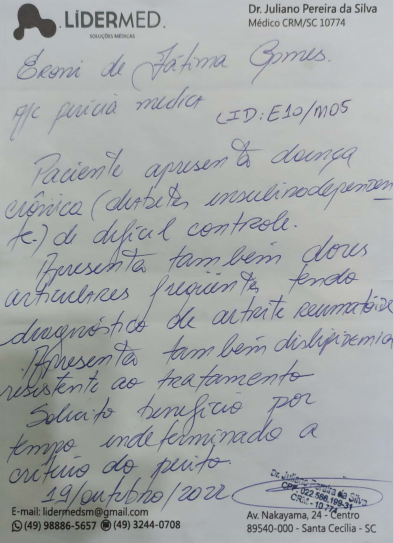 LÍDERMED.
SOLUÇÕES MÉDICAS
Dr. Juliano Pereira da Silva
Médico CRM/SC 10774
Eroni de Fátima Gomes.
A/c perícia médica
CID: E10/M05
Paciente apresenta doença
crônica (diabetes insulinodependen
te.) de difícil controle.
Apresenta também dores
articulares freqüentes tendo
diagnóstico de artrite reumatóide
. Apresenta também dislipidemia
resistente ao tratamento
Solicito benefício por
tempo indeterminado a
critério do perito.
19/outubro/2022
Dr. Juliano Pereira da Silva
CPF: 022.566.199-31
CRM - 10.774
E-mail: lidermedsm@gmail.com
(49) 98886-5657 (49) 3244-0708
Av. Nakayama, 24 - Centro
89540-000 - Santa Cecília - SC